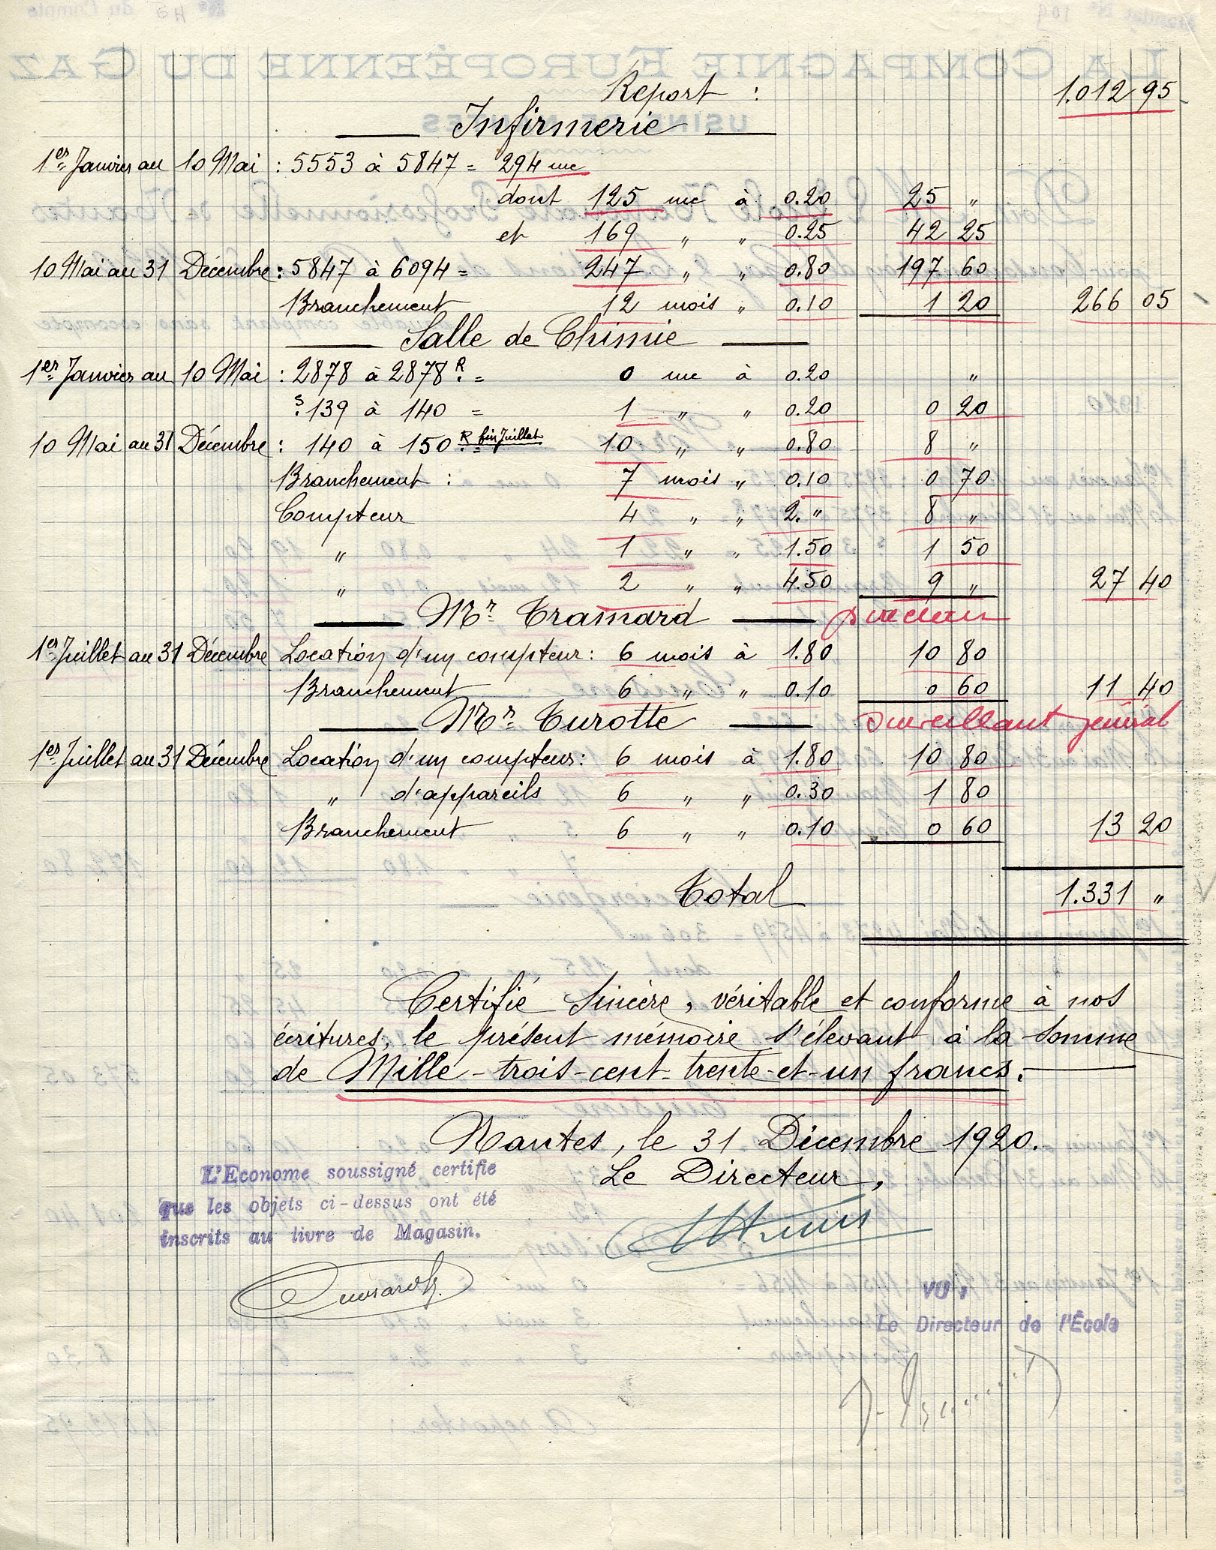 Report : 1.012 95
Infirmerie
1er Janvier au 10 Mai : 5553 à 5847 = 294 mc
dont 125 mc à 0.20 25 "
et 169 " " 0.25 42 25
10 Mai au 31 Décembre : 5847 à 6094 = 247 " " 0.80 197 60
Branchement 12 mois " 0.10 1 20 266 05
Salle de Chimie
1er Janvier au 10 Mai : 2878 à 2878 R. = 0 mc à 0.20 "
s. 139 à 140 = 1 " " 0.20 0 20
10 Mai au 31 Décembre : 140 à 150 R. fin Juillet = 10 " " 0.80 8 "
Branchement : 7 mois " 0.10 0 70
Compteur 4 " " 2. " 8 "
" 1 " " 1.50 1 50
" 2 " " 4.50 9 " 27 40
Mr Tramard
1er Juillet au 31 Décembre Location d'un compteur : 6 mois à 1.80 10 80
Branchement 6 " " 0.10 0 60 11 40
Mr Turotte surveillant général
1er Juillet au 31 Décembre Location d'un compteur : 6 mois à 1.80 10 80
" d'appareils 6 " " 0.30 1 80
Branchement 6 " " 0.10 0 60 13 20
Total 1.331 "
Certifié sincère, véritable et conforme à nos
écritures, le présent mémoire s'élevant à la somme
de Mille-trois-cent-trente-et-un francs.
Nantes, le 31 Décembre 1920.
Le Directeur,
L'Econome soussigné certifie
que les objets ci-dessus ont été
inscrits au livre de Magasin.
VU,
Le Directeur de l'École